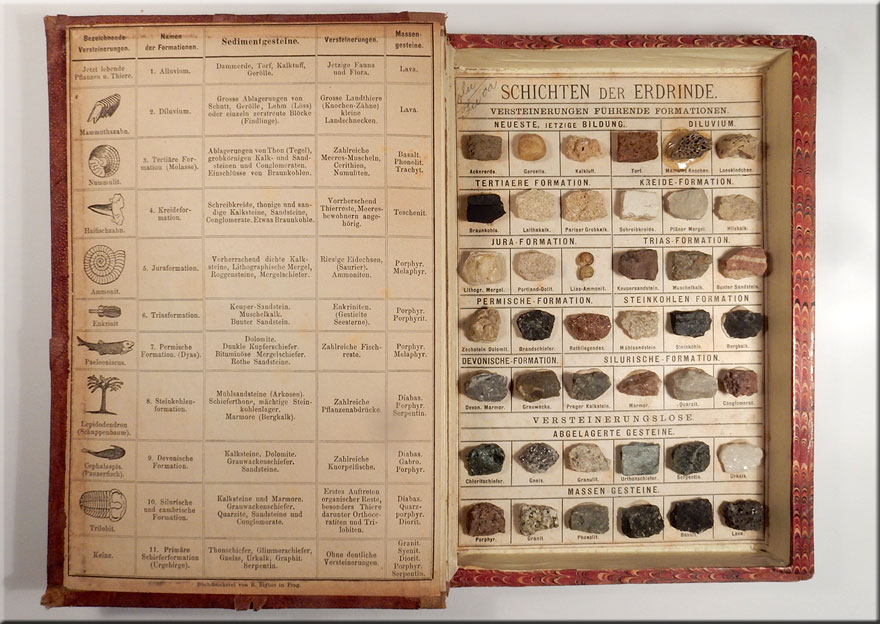 Bezeichnende
Versteinerungen.
Namen
der Formationen.
Sedimentgesteine.
Versteinerungen.
Massen-
gesteine.
Jetzt lebende
Pflanzen u. Thiere.
1. Alluvium.
Dammerde, Torf, Kalktuff,
Gerölle.
Jetzige Fauna
und Flora.
Lava.
Mammuthszahn.
2. Diluvium.
Grosse Ablagerungen von
Schutt, Gerölle, Lehm (Löss)
oder einzeln zerstreute Blöcke
(Findlinge).
Grosse Landthiere
(Knochen-Zähne)
kleine
Landschnecken.
Lava.
Nummulit.
3. Tertiäre For-
mation (Molasse).
Ablagerungen von Thon (Tegel),
grobkörnigen Kalk- und Sand-
steinen und Conglomeraten.
Einschlüsse von Braunkohlen.
Zahlreiche
Meeres-Muscheln,
Cerithien,
Numuliten.
Basalt.
Phonolit.
Trachyt.
Haifischzahn.
4. Kreidefor-
mation.
Schreibkreide, thonige und san-
dige Kalksteine, Sandsteine,
Conglomerate. Etwas Braunkohle.
Vorrherschend
Thierreste, Meeres-
bewohnern ange-
hörig.
Teschenit.
Ammonit.
5. Juraformation.
Vorherrschend dichte Kalk-
steine, Lithographische Mergel,
Roggensteine, Mergelschiefer.
Riesige Eidechsen,
(Saurier).
Ammoniten.
Porphyr.
Melaphyr.
Enkrinit
6. Triasformation.
Keuper-Sandstein.
Muschelkalk.
Bunter Sandstein.
Enkriniten.
(Gesticite
Seesterne).
Porphyr.
Porphyrit.
Paleoniscus.
7. Permische
Formation. (Dyas).
Dolomite.
Dunkle Kupferschiefer.
Bituminöse Mergelschiefer.
Rothe Sandsteine.
Zahlreiche Fisch-
reste.
Porphyr.
Melaphyr.
Lepidodendron
(Schuppenbaum).
8. Steinkohlen-
formation.
Mühlsandsteine (Arkosen).
Schieferthone, mächtige Stein-
kohlenlager.
Marmore (Bergkalk).
Zahlreiche
Pflanzenabdrücke.
Diabas.
Porphyr.
Serpentin.
Cephalaspis.
(Panzerfisch).
9. Devonische
Formation.
Kalksteine, Dolomite.
Grauwackenschiefer.
Sandsteine.
Zahlreiche
Knorpelfische.
Diabas.
Gabro.
Porphyr.
Trilobit.
10. Silurische
und cambrische
Formation.
Kalksteine und Marmore.
Grauwackenschiefer.
Quarzite, Sandsteine und
Conglomerate.
Erstes Auftreten
organischer Reste,
besonders Thiere
darunter Orthoce-
ratiten und Tri-
lobiten.
Diabas.
Quarz-
porphyr.
Diorit.
Keine.
11. Primäre
Schieferformation
(Urgebirge).
Thonschiefer, Glimmerschiefer,
Gneiss, Urkalk, Graphit.
Serpentin.
Ohne deutliche
Versteinerungen.
Granit.
Syenit.
Diorit.
Porphyr.
Serpentin.
SCHICHTEN DER ERDRINDE.
VERSTEINERUNGEN FÜHRENDE FORMATIONEN.
NEUESTE, JETZIGE BILDUNG.
DILUVIUM.
Ackererde.
Geroelle.
Kalktuff.
Torf.
Loesskindchen.
TERTIAERE FORMATION.
KREIDE-FORMATION.
Braunkohle.
Leithakalk.
Pariser Grobkalk.
Schreibkreide.
Pläner Mergel.
Hilskalk.
JURA-FORMATION.
TRIAS-FORMATION.
Lithogr. Mergel.
Portland-Oolit.
Lias-Ammonit.
Keupersandstein.
Muschelkalk.
Bunter Sandstein.
PERMISCHE-FORMATION.
STEINKOHLEN FORMATION
Zechstein Dolomit.
Brandschiefer.
Rothliegendes.
Mühlsandstein.
Steinkohle.
Bergkalk.
DEVONISCHE-FORMATION.
SILURISCHE-FORMATION.
Devon. Marmor.
Grauwacke.
Prager Kalkstein.
Marmor.
Quarzit.
Conglomerat.
VERSTEINERUNGSLOSE.
ABGELAGERTE GESTEINE.
Chloritschiefer.
Gneis.
Granulit.
Urthonschiefer.
Serpentin.
Urkalk.
MASSEN GESTEINE.
Porphyr.
Granit.
Phonolit.
Basalt.
Lava.